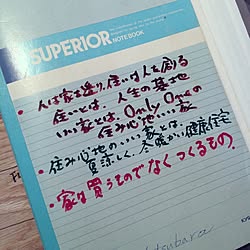 SUPERIOR
NOTE BOOK
・人は家を造り、住いは人を創る
住いとは、人生の基地
いい家とは、Only Oneの
住み心地のいい家
・住み心地のいい家とは、
夏涼しく、冬暖かい健康住宅
・家は買うものでなくつくるもの。